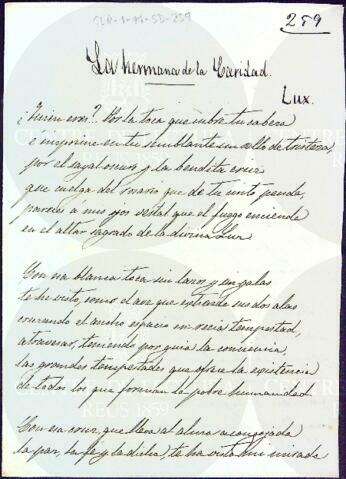 CLR-1-19-SD-259
259
La hermana de la Caridad.
Lux.
¿Quien eres? Por la toca que cubre tu cabeza
e imprime en tu semblante un sello de tristeza,
por el sayal oscuro y la bendita cruz
que cuelga del rosario que de tu cinto pende,
pareces á mis ojos vestal que el fuego enciende
en el altar sagrado de la divina Luz.
Con esa blanca toca sin lazos y sin galas
te he visto, como el ave que extiende sus dos alas
cruzando el ancho espacio en recia tempestad,
atravesar, teniendo por guia la conciencia,
las grandes tempestades que ofrece la existencia
de todos los que forman la pobre humanidad
Con esa cruz, que lleva al alma acongojada
la paz, la fé y la dicha, te ha visto mi mirada
CENTRE DE LECTURA
REUS 1859